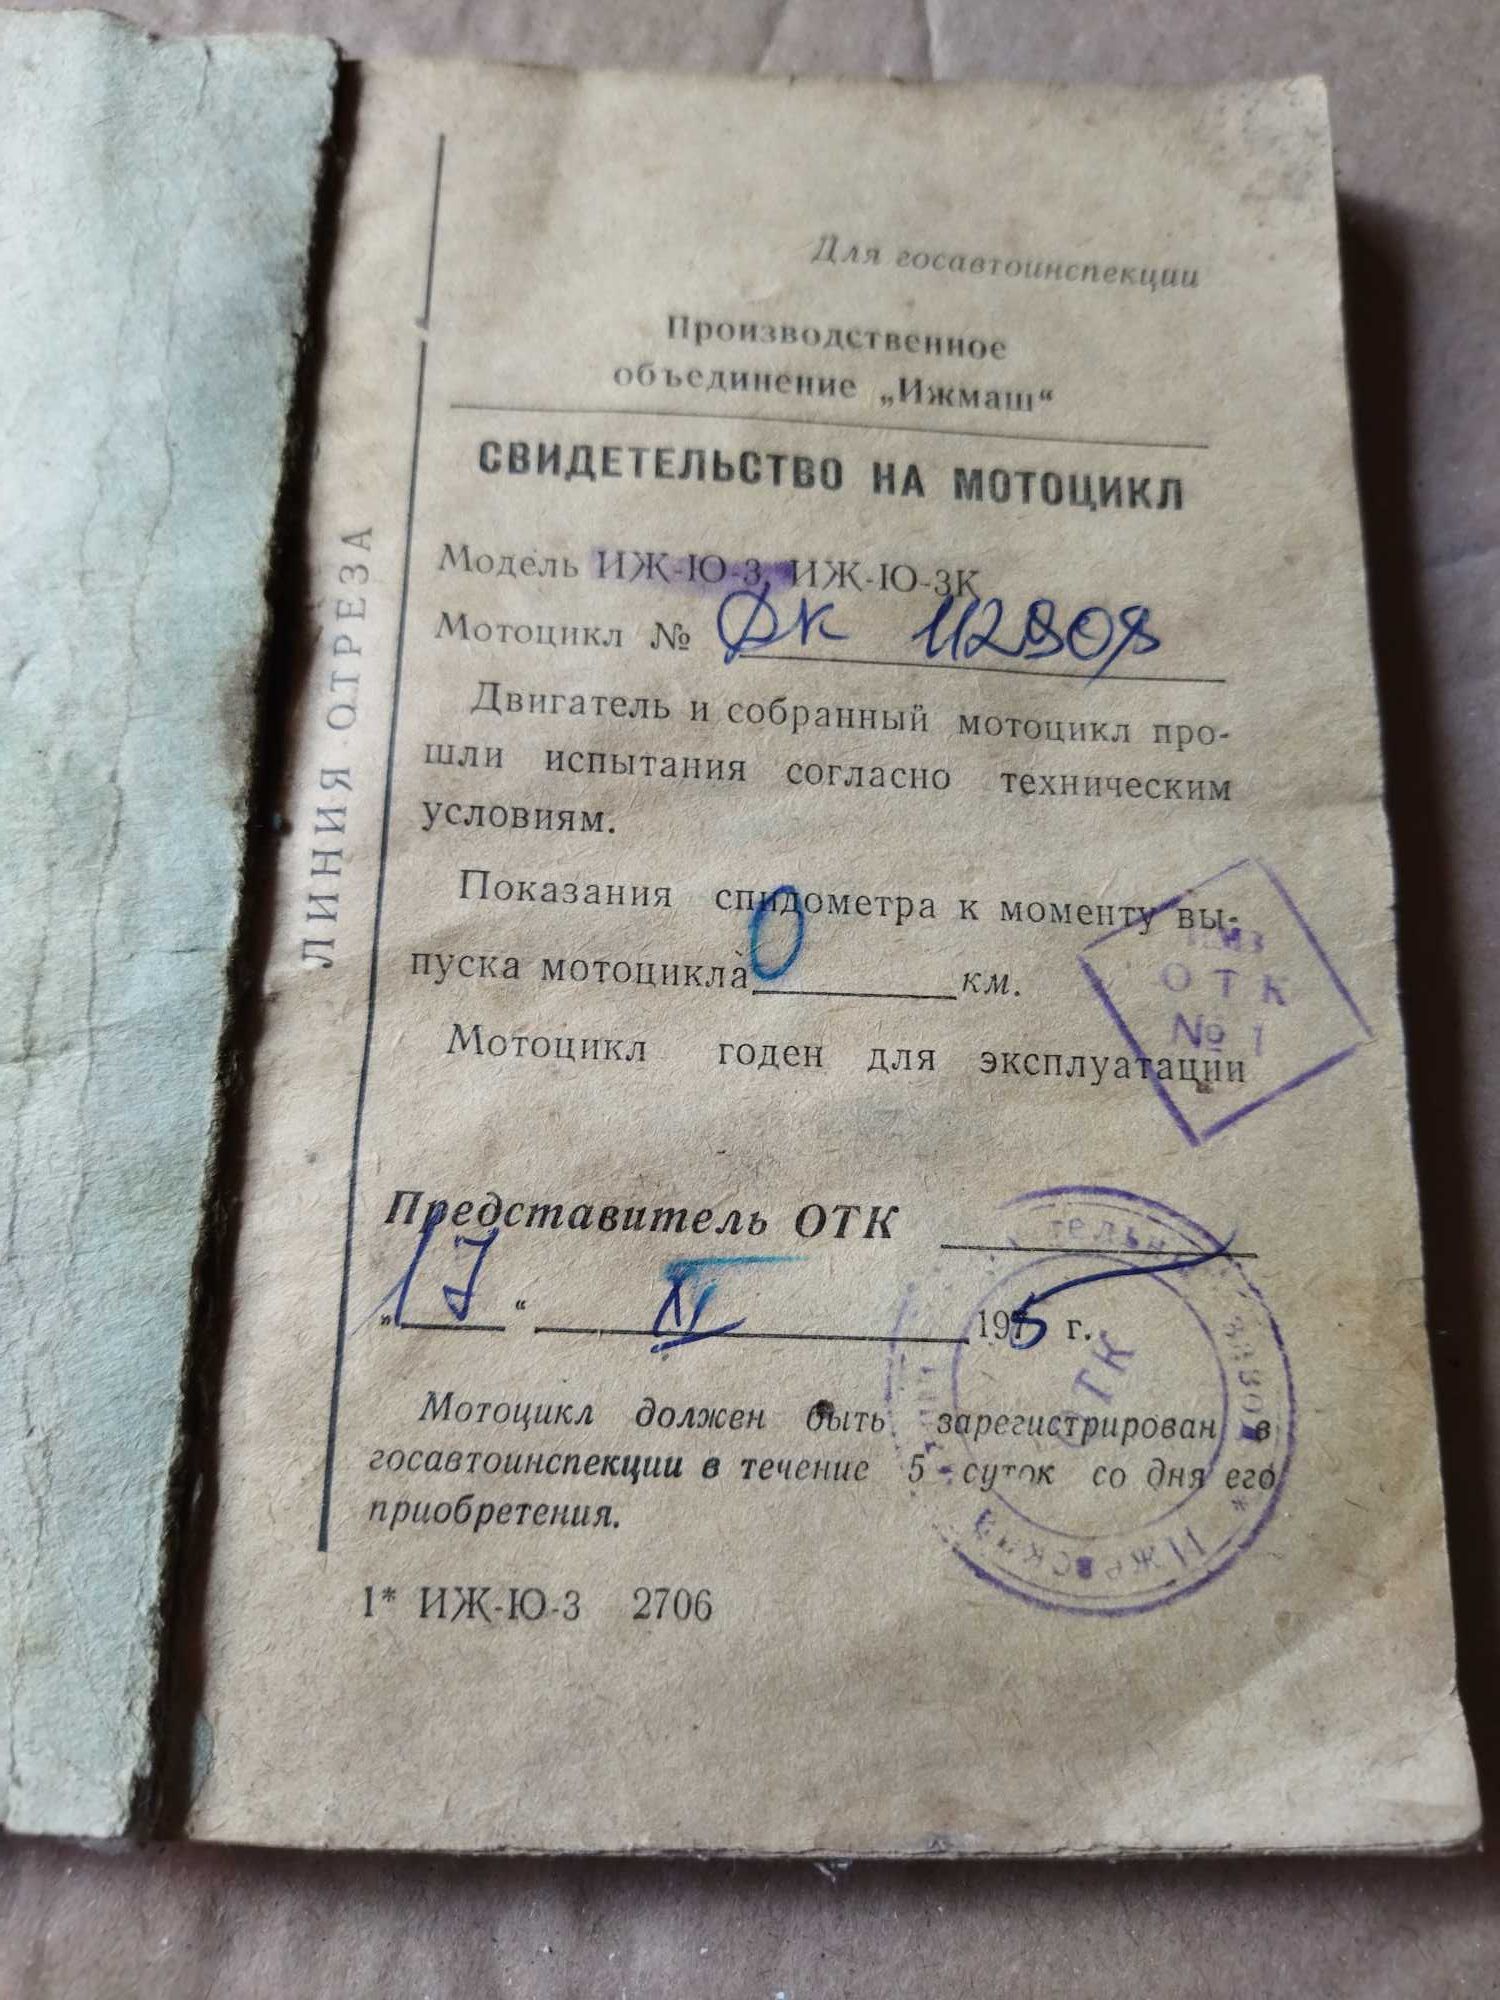 Для госавтоинспекции
Производственное
объединение „Ижмаш“
СВИДЕТЕЛЬСТВО НА МОТОЦИКЛ
Модель ИЖ-Ю-3, ИЖ-Ю-3К
Мотоцикл № ДК 112908
Двигатель и собранный мотоцикл про-
шли испытания согласно техническим
условиям.
Показания спидометра к моменту вы-
пуска мотоцикла 0 км.
Мотоцикл годен для эксплуатации
ОТК
№ 1
Представитель ОТК
„17“ XI 1975 г.
Мотоцикл должен быть зарегистрирован в
госавтоинспекции в течение 5 суток со дня его
приобретения.
1* ИЖ-Ю-3 2706
ЛИНИЯ ОТРЕЗА
ОТК